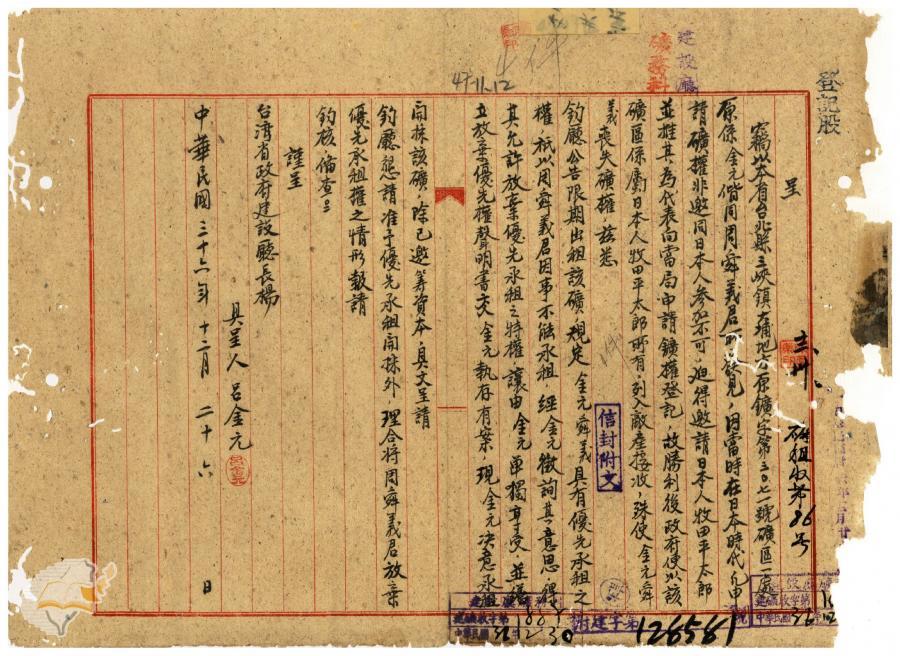 登記股
建設廳
礦務科
47.11.12
礦租收第86號
呈
竊以本省台北縣三峽鎮大埔地方原鑛字第三〇七一號礦區一處
原係金元偕同周舜義君所發見,因當時在日本時代,凡申
請礦權非邀同日本人參加不可,迫得邀請日本人牧田平太郎
並推其為代表向當局申請鑛權登記,故勝利後政府便以該
礦區係屬日本人牧田平太郎所有,列入敵產接收,殊使金元舜
義喪失礦權茲悉
鈞廳公告限期出租該礦,規定金元舜義具有優先承租之
權,祇以周舜義君因事不能承租,經金元徵詢其意思,得
其允許放棄優先承租之特權讓由金元單獨享受,並
立放棄優先權聲明書交金元執存有案,現金元決意承租
開採該礦,除已邀籌資本,具文呈請
鈞廳懇請准予優先承租開採外,理合將周舜義君放棄
優先承租權之情形報請
鈞核,備查。
謹呈
台灣省政府建設廳長楊
具呈人 呂金元
中華民國三十六年十二月二十六日
信封附文
附建字第128581號